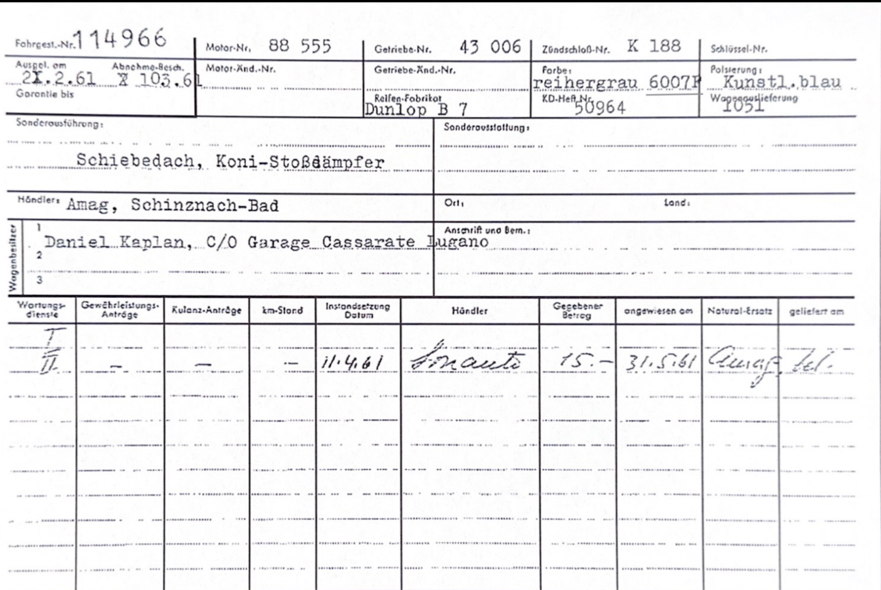 Fahrgest.-Nr. 114966 Motor-Nr. 88 555 Getriebe-Nr. 43 006 Zündschloß-Nr. K 188 Schlüssel-Nr.
Ausgel. am Abnahme-Besch. Motor-Änd.-Nr. Getriebe-Änd.-Nr. Farbe: Polsterung:
2X.2.61 X 103.61 reihergrau 6007R Kunstl.blau
Garantie bis Reifen-Fabrikat KD-Heft Nr. Wagenauslieferung
Dunlop B 7 50964 1051
Sonderausführung: Sonderausstattung:
Schiebedach, Koni-Stoßdämpfer
Händler: Amag, Schinznach-Bad Ort: Land:
Wagenbesitzer
1 Anschrift und Bem.:
Daniel Kaplan, C/O Garage Cassarate Lugano
2
3
Wartungs-dienste Gewährleistungs-Anträge Kulanz-Anträge km-Stand Instandsetzung Datum Händler Gegebener Betrag angewiesen am Natural-Ersatz geliefert am
I
II - - - 11.4.61 Sonauto 15.- 31.5.61 Amag